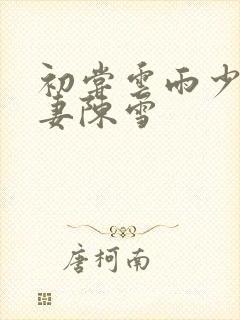 初尝雲雨少
妻陳雪
唐柯南